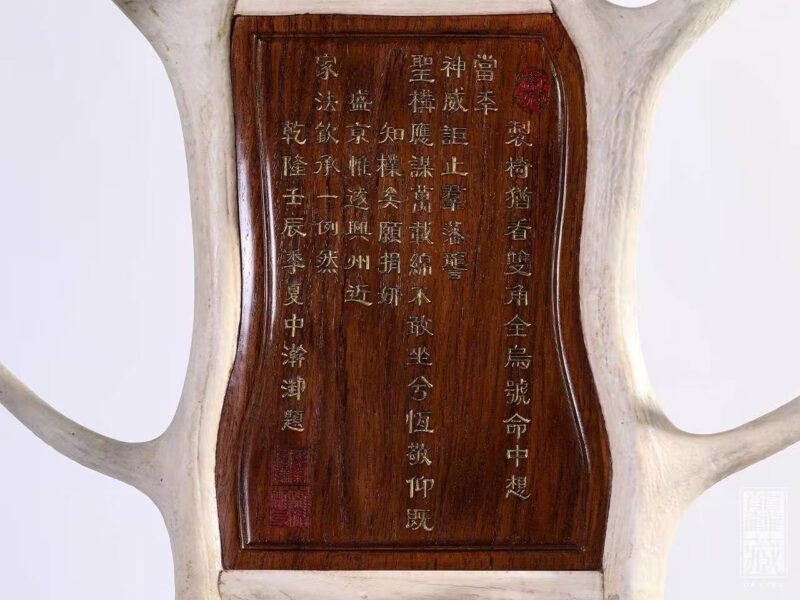 製椅猶看雙角全烏號命中想
當秊
神威詎止羣藩讋
聖構應謀萬載綿不敢坐兮恆敬仰既
知樸矣願捐妍
盛京惟遠興州近
家法欽承一例然
乾隆壬辰季夏中澣御題